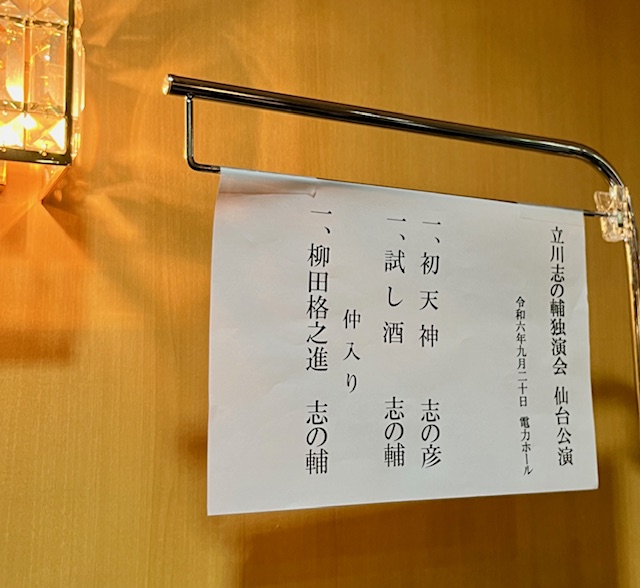 立川志の輔独演会 仙台公演
令和六年九月二十日 電力ホール
一、初天神 志の彦
一、試し酒 志の輔
仲入り
一、柳田格之進 志の輔